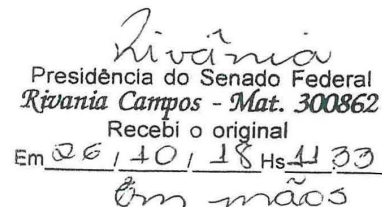 Rivânia
Presidência do Senado Federal
Rivania Campos - Mat. 300862
Recebi o original
Em 26 / 10 / 18 Hs 11 33
Em mãos